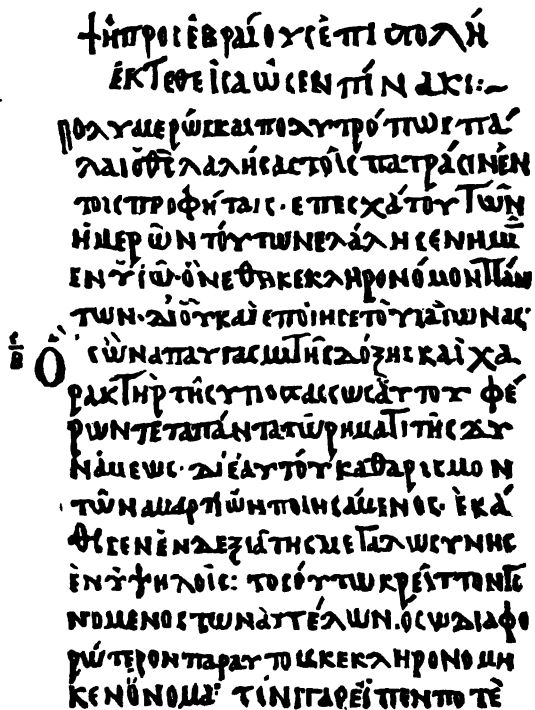 ἡ πρὸς ἑβραίους ἐπιστολὴ
ἐκτεθεῖσα ὡς ἐν πίνακι:~
πολυμερῶς καὶ πολυτρόπως πά
λαι ὁ θς λαλήσας τοῖς πατράσιν ἐν
τοῖς προφήταις· επ ἐσχάτου τῶν
ἡμερῶν τούτων ελάλησεν ἡμῖ
ἐν ὑϊῶ· ὃν έθηκε κληρονόμον πάν
των· δι οὗ καὶ εποίησε τοὺς αἰωνας·
ὃς ὢν απαυγασμα τῆς δόξης καὶ χα
ρακτὴρ τῆς υποστάσεως ἀυτου φέ
ρων τε τα πάντα τῶ ρήματι τῆς δυ
νάμεως· δι εάυτοῦ καθαρισμον
τῶν αμαρτιῶν ποιησάμενος· ἐκά
θισεν ἐν δεξιᾶ της μεγαλωσυνης
ἐν ὑψηλοῖς: τοσόυτω κρείττον γε
νομενος των ἀγγέλων. ὅσω διαφο
ρώτερον παρ αυτους κεκληρονομη
κεν ὄνομα· τίνι γαρ εἶπεν ποτὲ